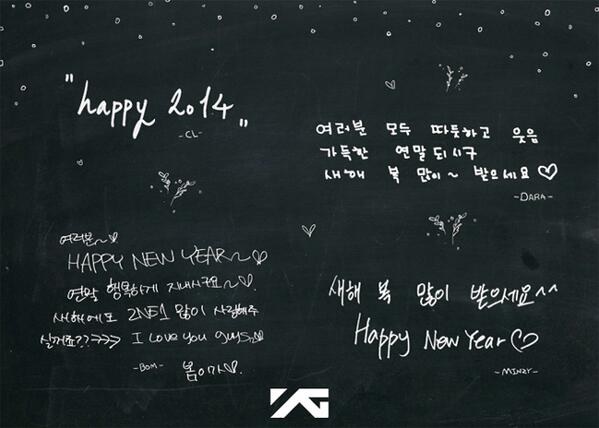 "happy 2014"
-CL-
여러분 모두 따뜻하고 웃음
가득한 연말 되시구
새해 복 많이~ 받으세요♡
-DARA-
여러분~♡
HAPPY NEW YEAR~♡
연말 행복하게 지내시구요~♡.
새해에도 2NE1 많이 사랑해주
실꺼죠??ㅋㅋㅋ I love you guys~♡
-BOM- 봄이가♡.
새해 복 많이 받으세요^^
Happy New Year♡
-MINZY-
YG